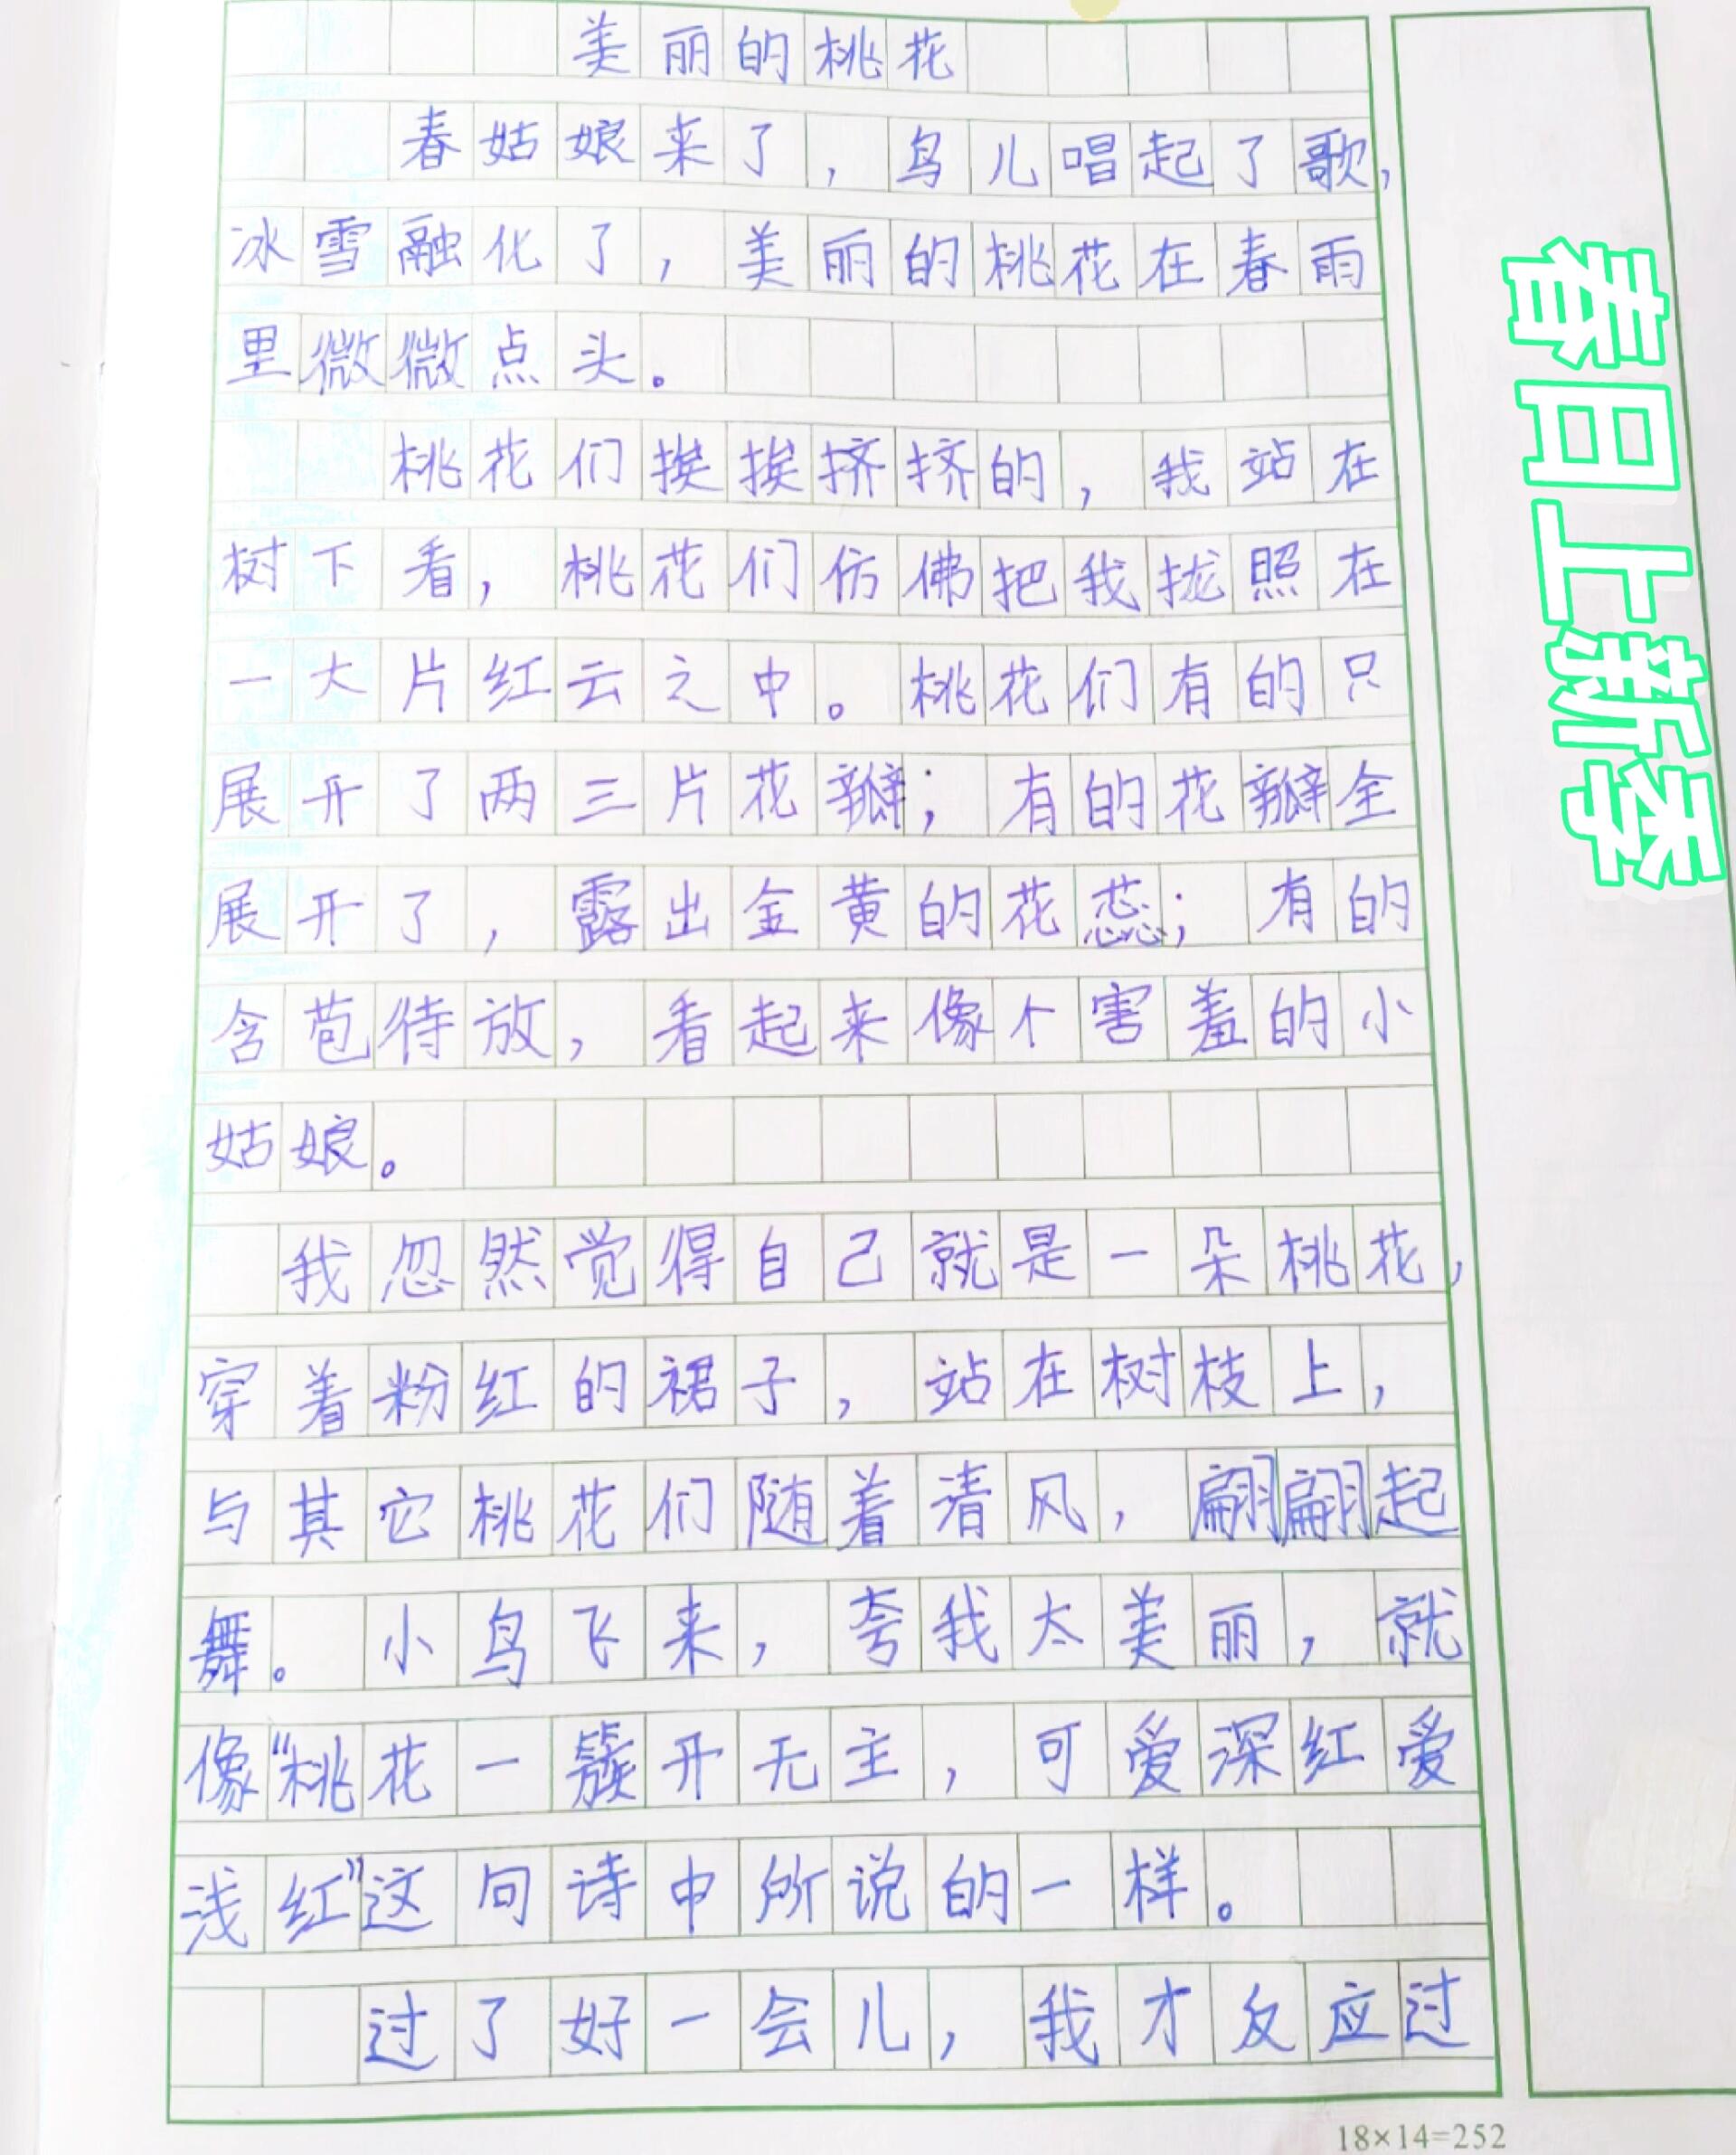 美丽的桃花
春姑娘来了，鸟儿唱起了歌，
冰雪融化了，美丽的桃花在春雨
里微微点头。
桃花们挨挨挤挤的，我站在
树下看，桃花们仿佛把我拢照在
一大片红云之中。桃花们有的只
展开了两三片花瓣；有的花瓣全
展开了，露出金黄的花蕊；有的
含苞待放，看起来像个害羞的小
姑娘。
我忽然觉得自己就是一朵桃花，
穿着粉红的裙子，站在树枝上，
与其它桃花们随着清风，翩翩起
舞。小鸟飞来，夸我太美丽，就
像“桃花一簇开无主，可爱深红爱
浅红”这句诗中所说的一样。
过了好一会儿，我才反应过
18×14=252
春日上新季